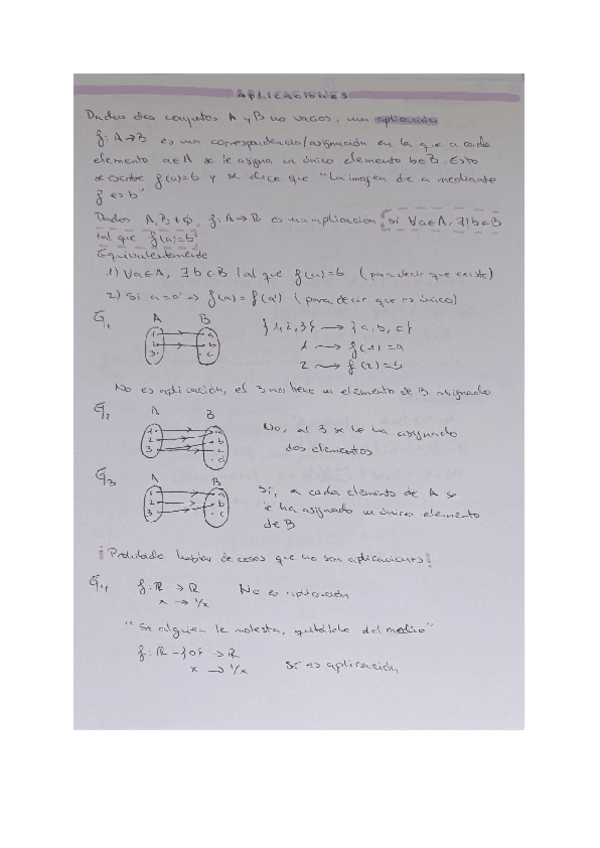 APLICACIONES
Dados dos conjuntos A y B no vacíos, una aplicación
f: A→B es una correspondencia/asignación en la que a cada
elemento a∈A se le asigna un único elemento b∈B. Esto
se escribe f(a)=b y se dice que "La imagen de a mediante
f es b"
Dados A, B ≠ ∅, f: A→B es una aplicación si ∀a∈A, ∃! b∈B
tal que f(a)=b
Equivalentemente
1) ∀a∈A, ∃ b∈B tal que f(a)=b (para decir que existe)
2) Si a=a' ⇒ f(a)=f(a') (para decir que es único)
A B
{1,2,3} → {a,b,c}
1 → f(1)=a
2 → f(2)=b
1 2 3 a b c
No es aplicación, el 3 no tiene un elemento de B asignado
A B
1 2 3 a b c d
No, al 3 se le ha asignado
dos elementos
A B
1 2 3 a b c
Sí, a cada elemento de A se
le ha asignado un único elemento
de B
¡Prohibido hablar de cosas que no son aplicaciones!
f: ℝ → ℝ No es aplicación
x → 1/x
"Si alguien te molesta, quítatelo del medio"
f: ℝ - {0} → ℝ
x → 1/x Sí es aplicación